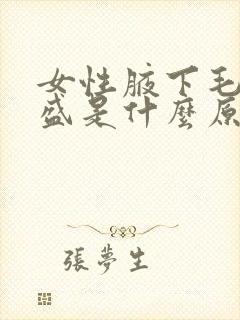 女性腋下毛
盛是什麼原
張夢生